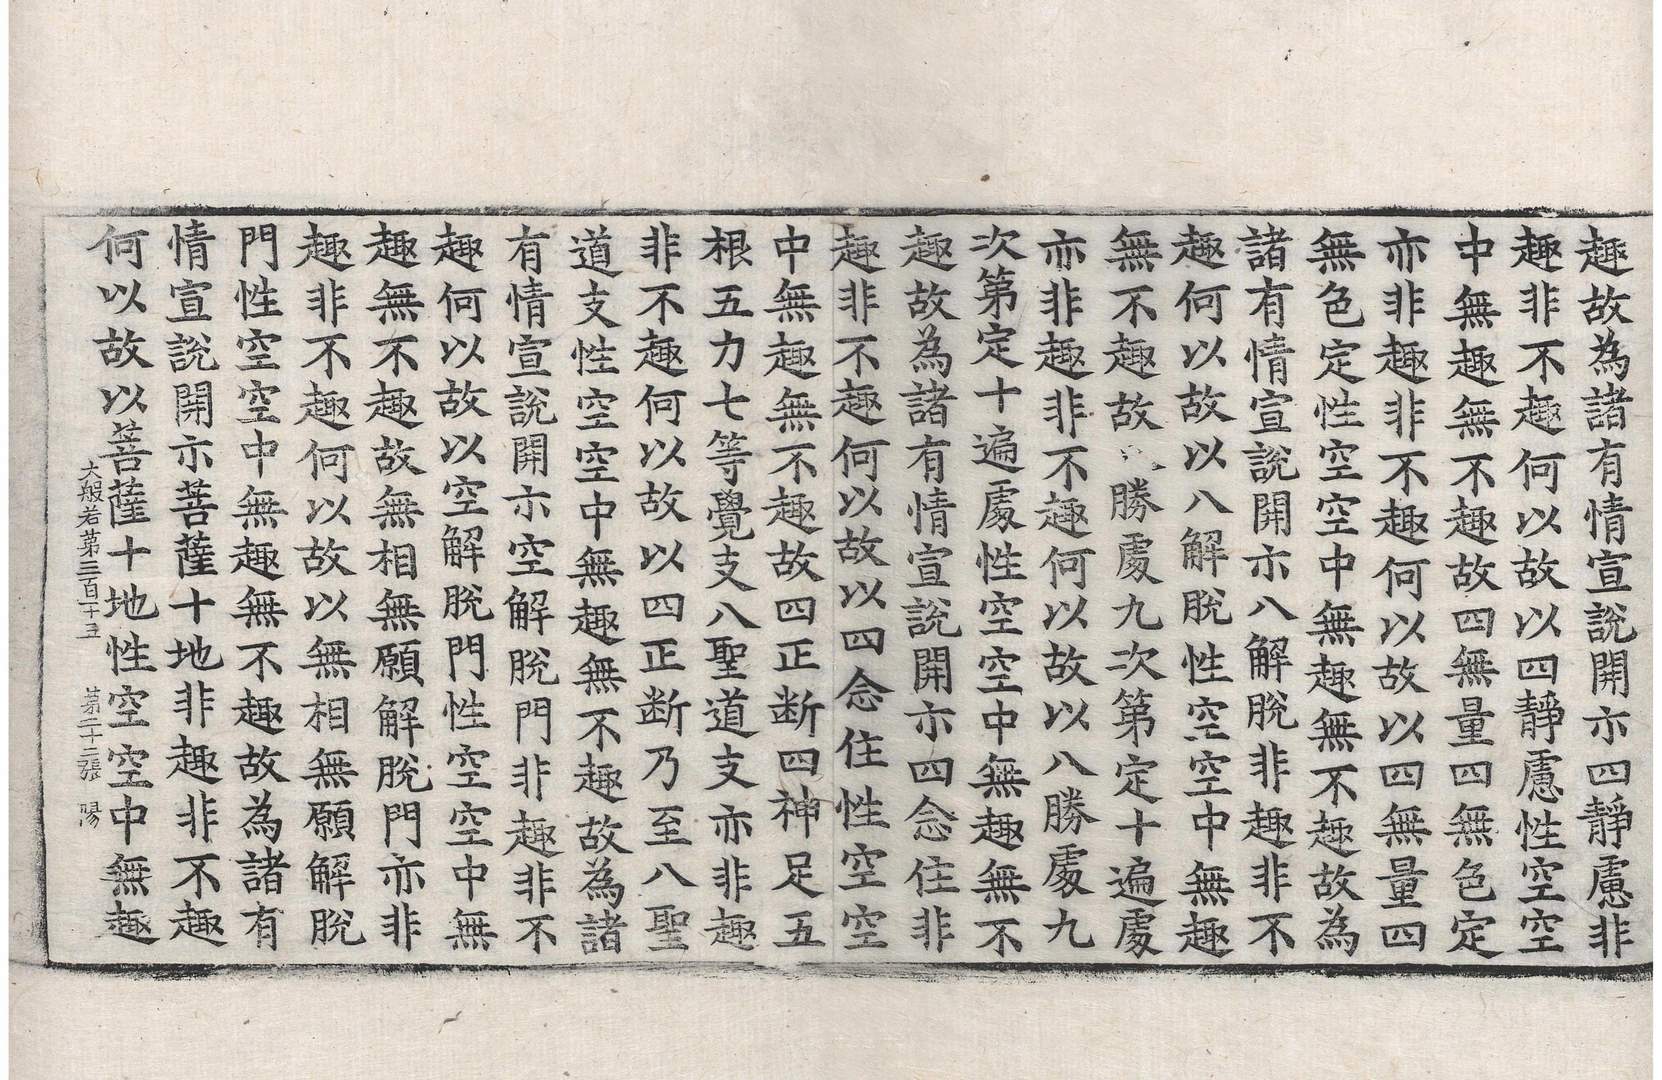 趣故為諸有情宣說開示四靜慮非
趣非不趣何以故以四靜慮性空空
中無趣無不趣故四無量四無色定
亦非趣非不趣何以故以四無量四
無色定性空空中無趣無不趣故為
諸有情宣說開示八解脫非趣非不
趣何以故以八解脫性空空中無趣
無不趣故勝處九次第定十遍處
亦非趣非不趣何以故以八勝處九
次第定十遍處性空空中無趣無不
趣故為諸有情宣說開示四念住非
趣非不趣何以故以四念住性空空
中無趣無不趣故四正断四神足五
根五力七等覺支八聖道支亦非趣
非不趣何以故以四正断乃至八聖
道支性空空中無趣無不趣故為諸
有情宣說開示空解脫門非趣非不
趣何以故以空解脫門性空空中無
趣無不趣故無相無願解脫門亦非
趣非不趣何以故以無相無願解脫
門性空空中無趣無不趣故為諸有
情宣說開示菩薩十地非趣非不趣
何以故以菩薩十地性空空中無趣
大般若第三百十五 第二十二張 陽